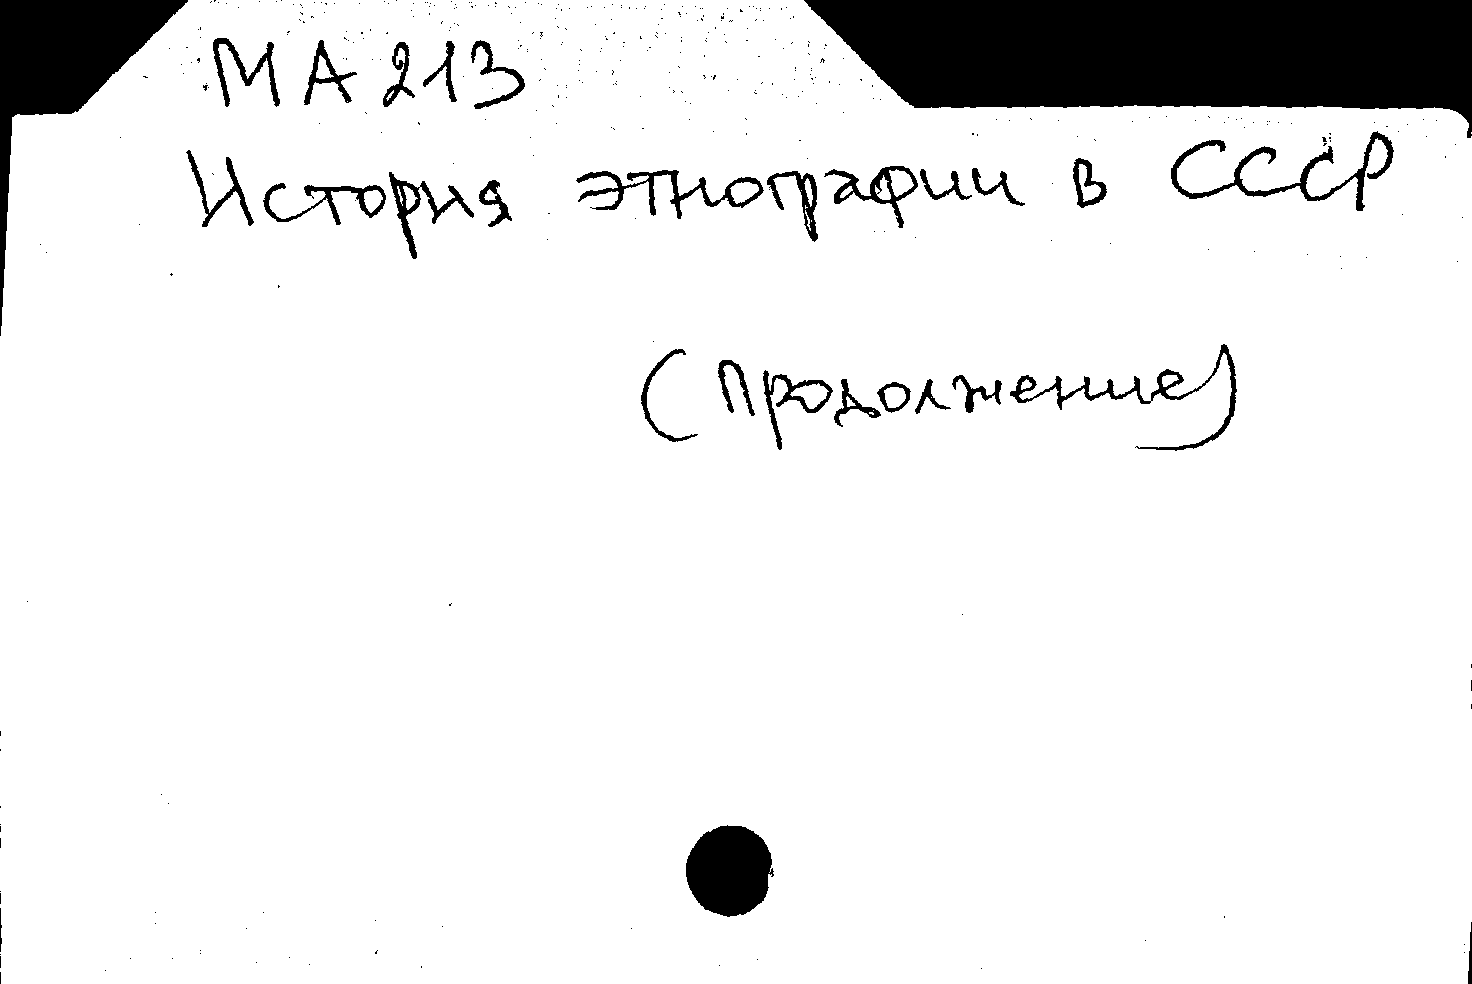 МА 213
История этнографии в СССР
(Продолжение)